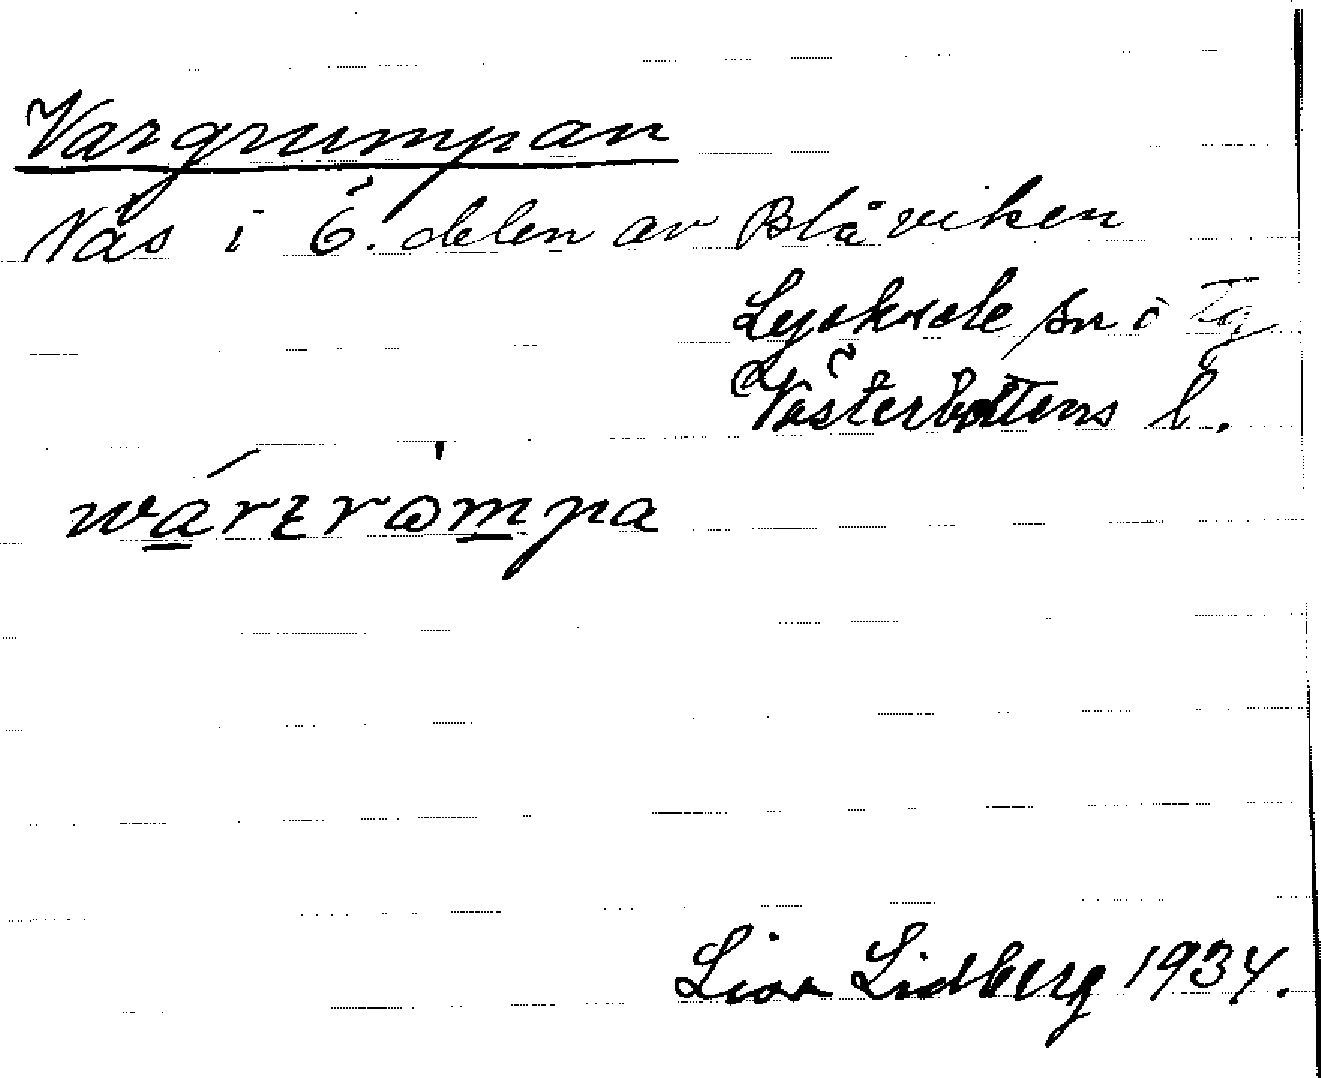 Vargrumpan
Näs i Ö. delen av Blåviken
Lycksele sn o Tg
Västerbottens l.
Lisa Lidberg 1934.